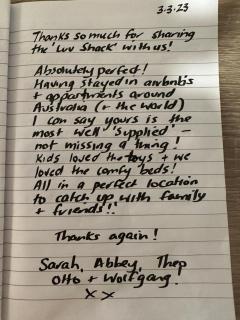 3.3.23
Thanks so much for sharing
the 'Luv Shack' with us!
Absolutely perfect!
Having stayed in airbnbs
+ appartments around
Australia (+ the world)
I can say yours is the
most well 'supplied' –
not missing a thing!
Kids loved the toys + we
loved the comfy beds!
All in a perfect location
to catch up with family
+ friends!!
Thanks again!
Sarah, Abbey, Theo
Otto + Wolfgang.
x x